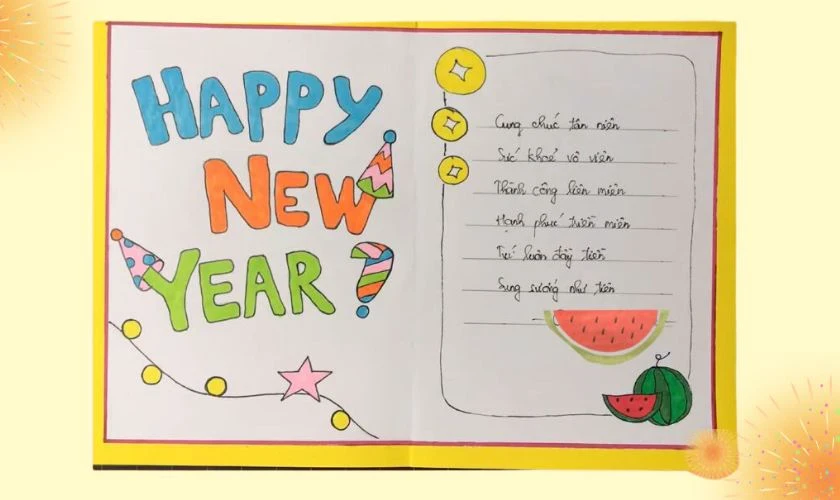 HAPPY
NEW
YEAR?
Cung chúc tân niên
Sức khoẻ vô viên
Thành công liên miên
Hạnh phúc triền miên
Túi luôn đầy tiền
Sung sướng như tiên